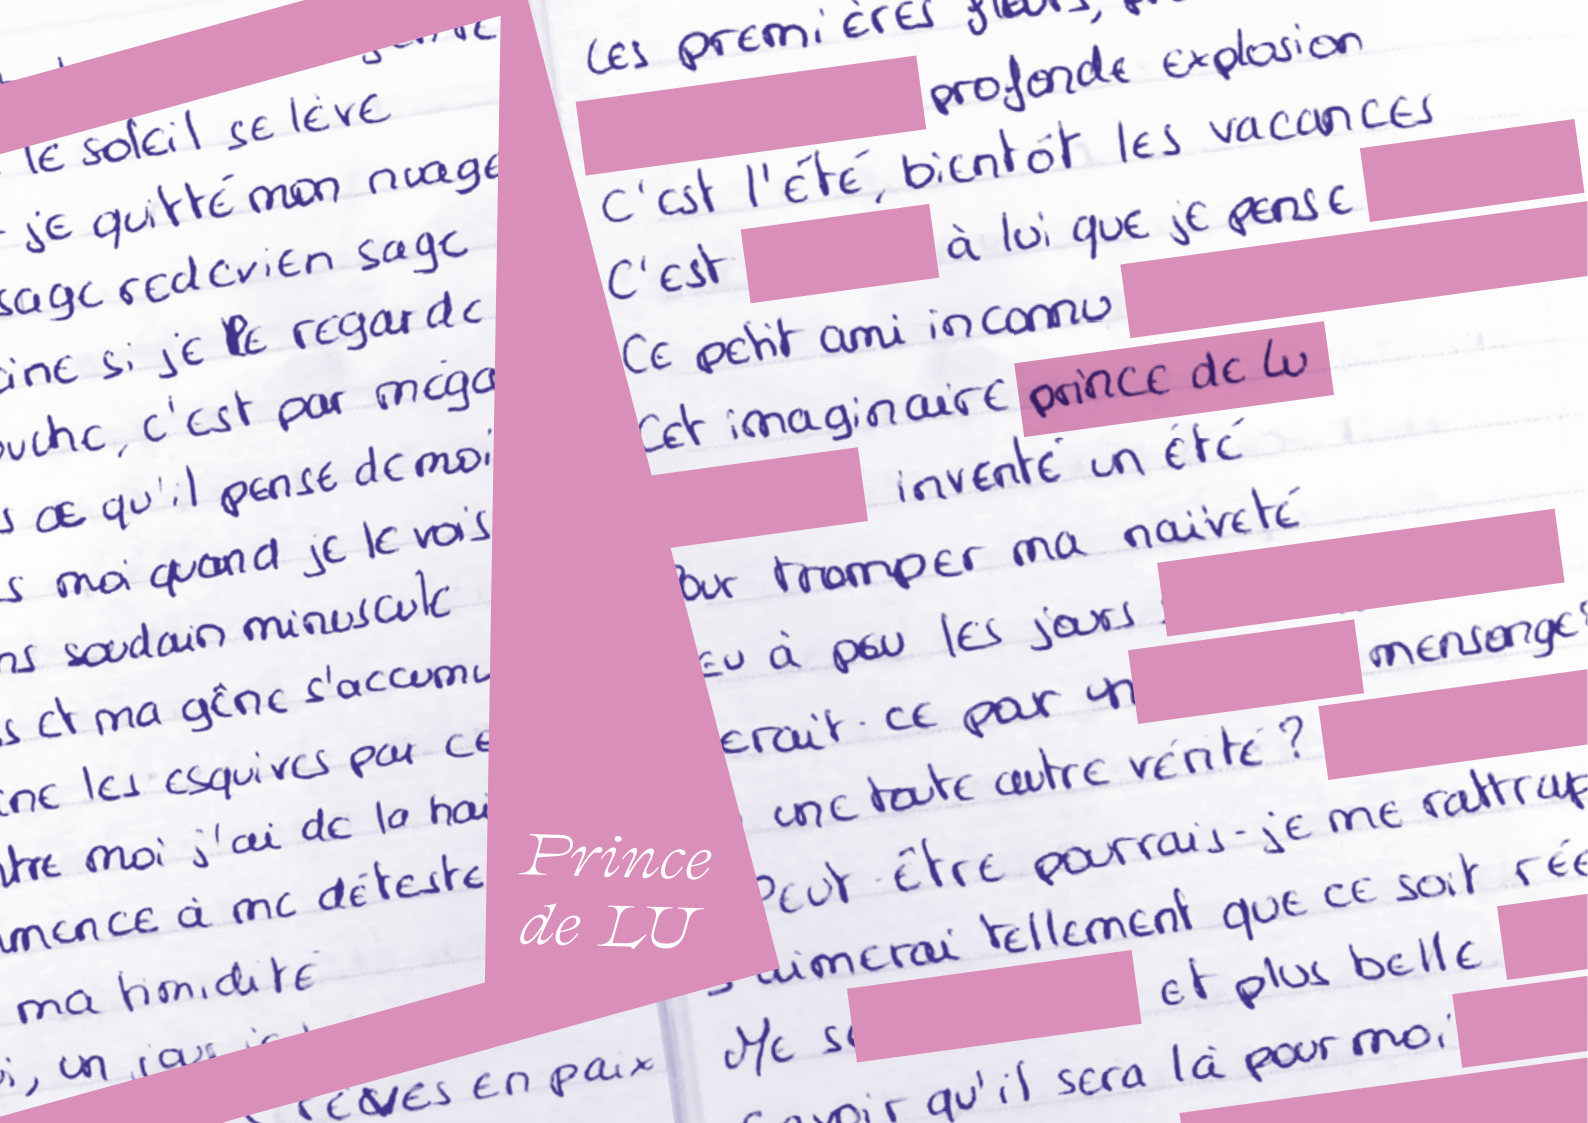 le soleil se lève
je quitté mon nuage
sage redevien sage
si je le regarde
c'est par
ce qu'il pense de moi
moi quand je le vois
soudain minuscule
et ma gêne
les esquives par
moi j'ai de la
à me déteste
ma timidité
un
rêves en paix
Les premières fleurs,
profonde explosion
C'est l'été, bientôt les vacances
C'est à lui que je pense
Ce petit ami inconnu
Cet imaginaire prince de Lu
inventé un été
Pour tromper ma naiveté
à peu les jours
ce par un mensonge
une toute autre vérité ?
Peut-être pourrais-je me
tellement que ce soit
et plus belle
Me
Savoir qu'il sera là pour moi
Prince
de LU